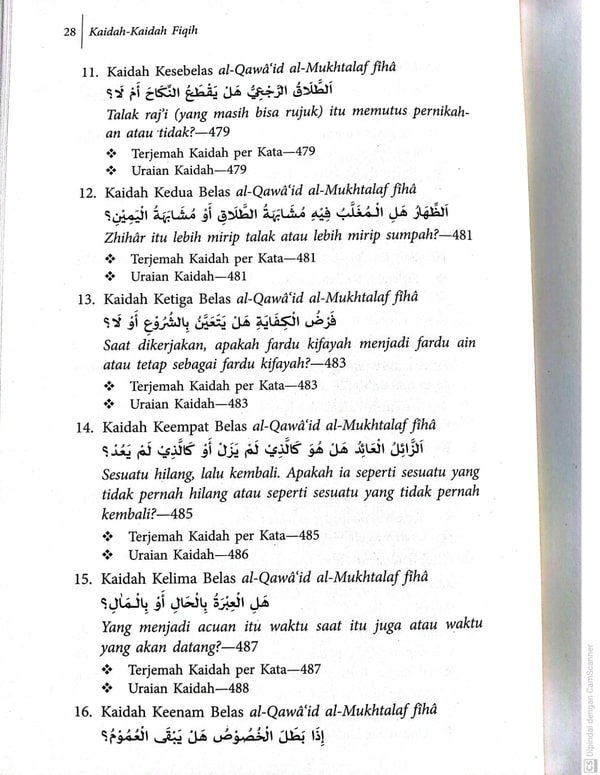 28 Kaidah-Kaidah Fiqih
11. Kaidah Kesebelas al-Qawâ‘id al-Mukhtalaf fîhâ
اَلطَّلَاقُ الرَّجْعِيُّ هَلْ يَقْطَعُ النِّكَاحَ أَمْ لَا؟
Talak raj'i (yang masih bisa rujuk) itu memutus pernikah-
an atau tidak?—479
❖ Terjemah Kaidah per Kata—479
❖ Uraian Kaidah—479
12. Kaidah Kedua Belas al-Qawâ‘id al-Mukhtalaf fîhâ
اَلظِّهَارُ هَلِ الْمُغَلَّبُ فِيْهِ مُشَابَهَةُ الطَّلَاقِ أَوْ مُشَابَهَةُ الْيَمِيْنِ؟
Zhihâr itu lebih mirip talak atau lebih mirip sumpah?—481
❖ Terjemah Kaidah per Kata—481
❖ Uraian Kaidah—481
13. Kaidah Ketiga Belas al-Qawâ‘id al-Mukhtalaf fîhâ
فَرْضُ الْكِفَايَةِ هَلْ يَتَعَيَّنُ بِالشُّرُوْعِ أَوْ لَا؟
Saat dikerjakan, apakah fardu kifayah menjadi fardu ain
atau tetap sebagai fardu kifayah?—483
❖ Terjemah Kaidah per Kata—483
❖ Uraian Kaidah—483
14. Kaidah Keempat Belas al-Qawâ‘id al-Mukhtalaf fîhâ
اَلزَّائِلُ الْعَائِدُ هَلْ هُوَ كَالَّذِيْ لَمْ يَزَلْ أَوْ كَالَّذِيْ لَمْ يَعُدْ؟
Sesuatu hilang, lalu kembali. Apakah ia seperti sesuatu yang
tidak pernah hilang atau seperti sesuatu yang tidak pernah
kembali?—485
❖ Terjemah Kaidah per Kata—485
❖ Uraian Kaidah—486
15. Kaidah Kelima Belas al-Qawâ‘id al-Mukhtalaf fîhâ
هَلِ الْعِبْرَةُ بِالْحَالِ أَوْ بِالْمَالِ؟
Yang menjadi acuan itu waktu saat itu juga atau waktu
yang akan datang?—487
❖ Terjemah Kaidah per Kata—487
❖ Uraian Kaidah—488
16. Kaidah Keenam Belas al-Qawâ‘id al-Mukhtalaf fîhâ
إِذَا بَطَلَ الْخُصُوْصُ هَلْ يَبْقَى الْعُمُوْمُ؟
CS Dipindai dengan CamScanner